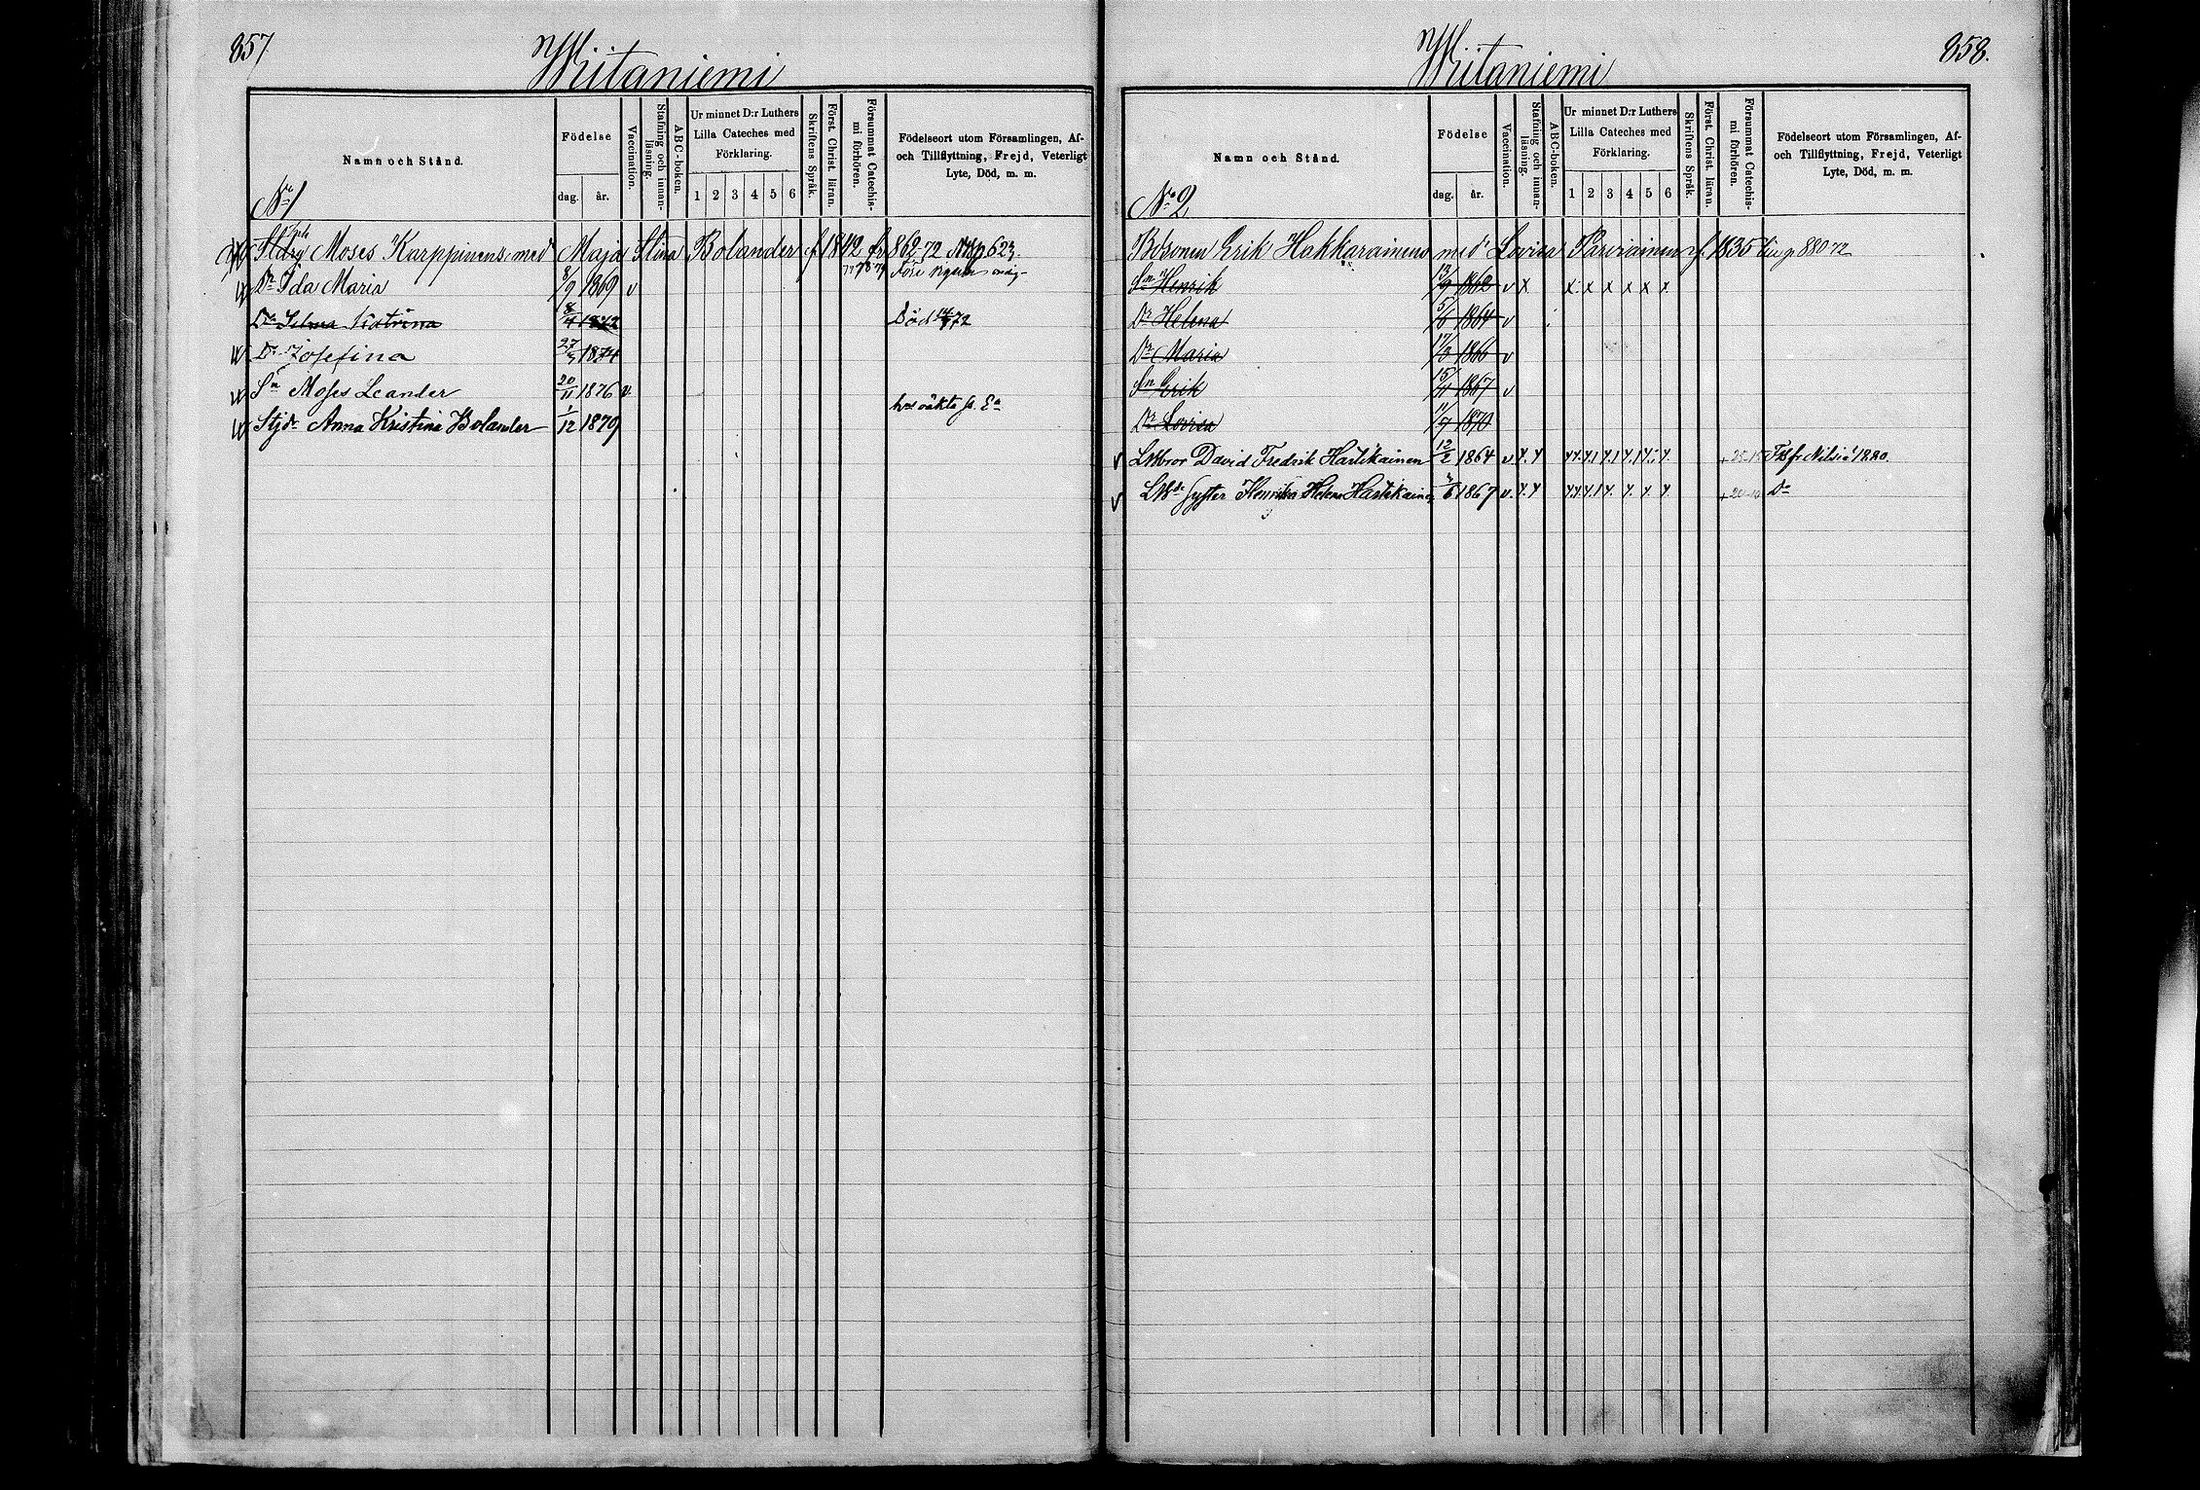 857
Wiitaniemi
Namn och Stånd.
Födelse
dag.
år.
Vaccination.
Stafning och innan-
läsning.
ABC-boken.
Ur minnet D:r Luthers
Lilla Cateches med
Förklaring.
1 2 3 4 5 6
Skriftens Språk.
Först. Christ. läran.
Försummat Catechis-
mi förhören.
Födelseort utom Församlingen, Af-
och Tillflyttning, Frejd, Veterligt
Lyte, Död, m. m.
No 1
Moses Karppinens med Maja Stina Bolander f. 1842 fr 862-72
Dr Ida Maria 8/9 1869 v
Dr Selma Kristina 1872 Död 72
Dr Josefina 27/3 1874
Sn Moses Leander 20/11 1876 v.
Stjdr Anna Kristina Bolander 1/12 1879
858.
Wiitaniemi
Namn och Stånd.
Födelse
dag.
år.
Vaccination.
Stafning och innan-
läsning.
ABC-boken.
Ur minnet D:r Luthers
Lilla Cateches med
Förklaring.
1 2 3 4 5 6
Skriftens Språk.
Först. Christ. läran.
Försummat Catechis-
mi förhören.
Födelseort utom Församlingen, Af-
och Tillflyttning, Frejd, Veterligt
Lyte, Död, m. m.
No 2
Erik Hakkarainens med Lovisa Parviainen f. 1835 p 880 72
Sn Henrik 13/9 1862 v x x x x x x x
Dr Helena 5/6 1864 v
Dr Maria 17/3 1866 v
Sn Erik 15/11 1867 v
Dr Lovisa 11/7 1870
v David Fredrik Hartikainen 12/2 1864 Nilsiä 1880.
v Syster Henrika Helena Hartikainen 1867 Do